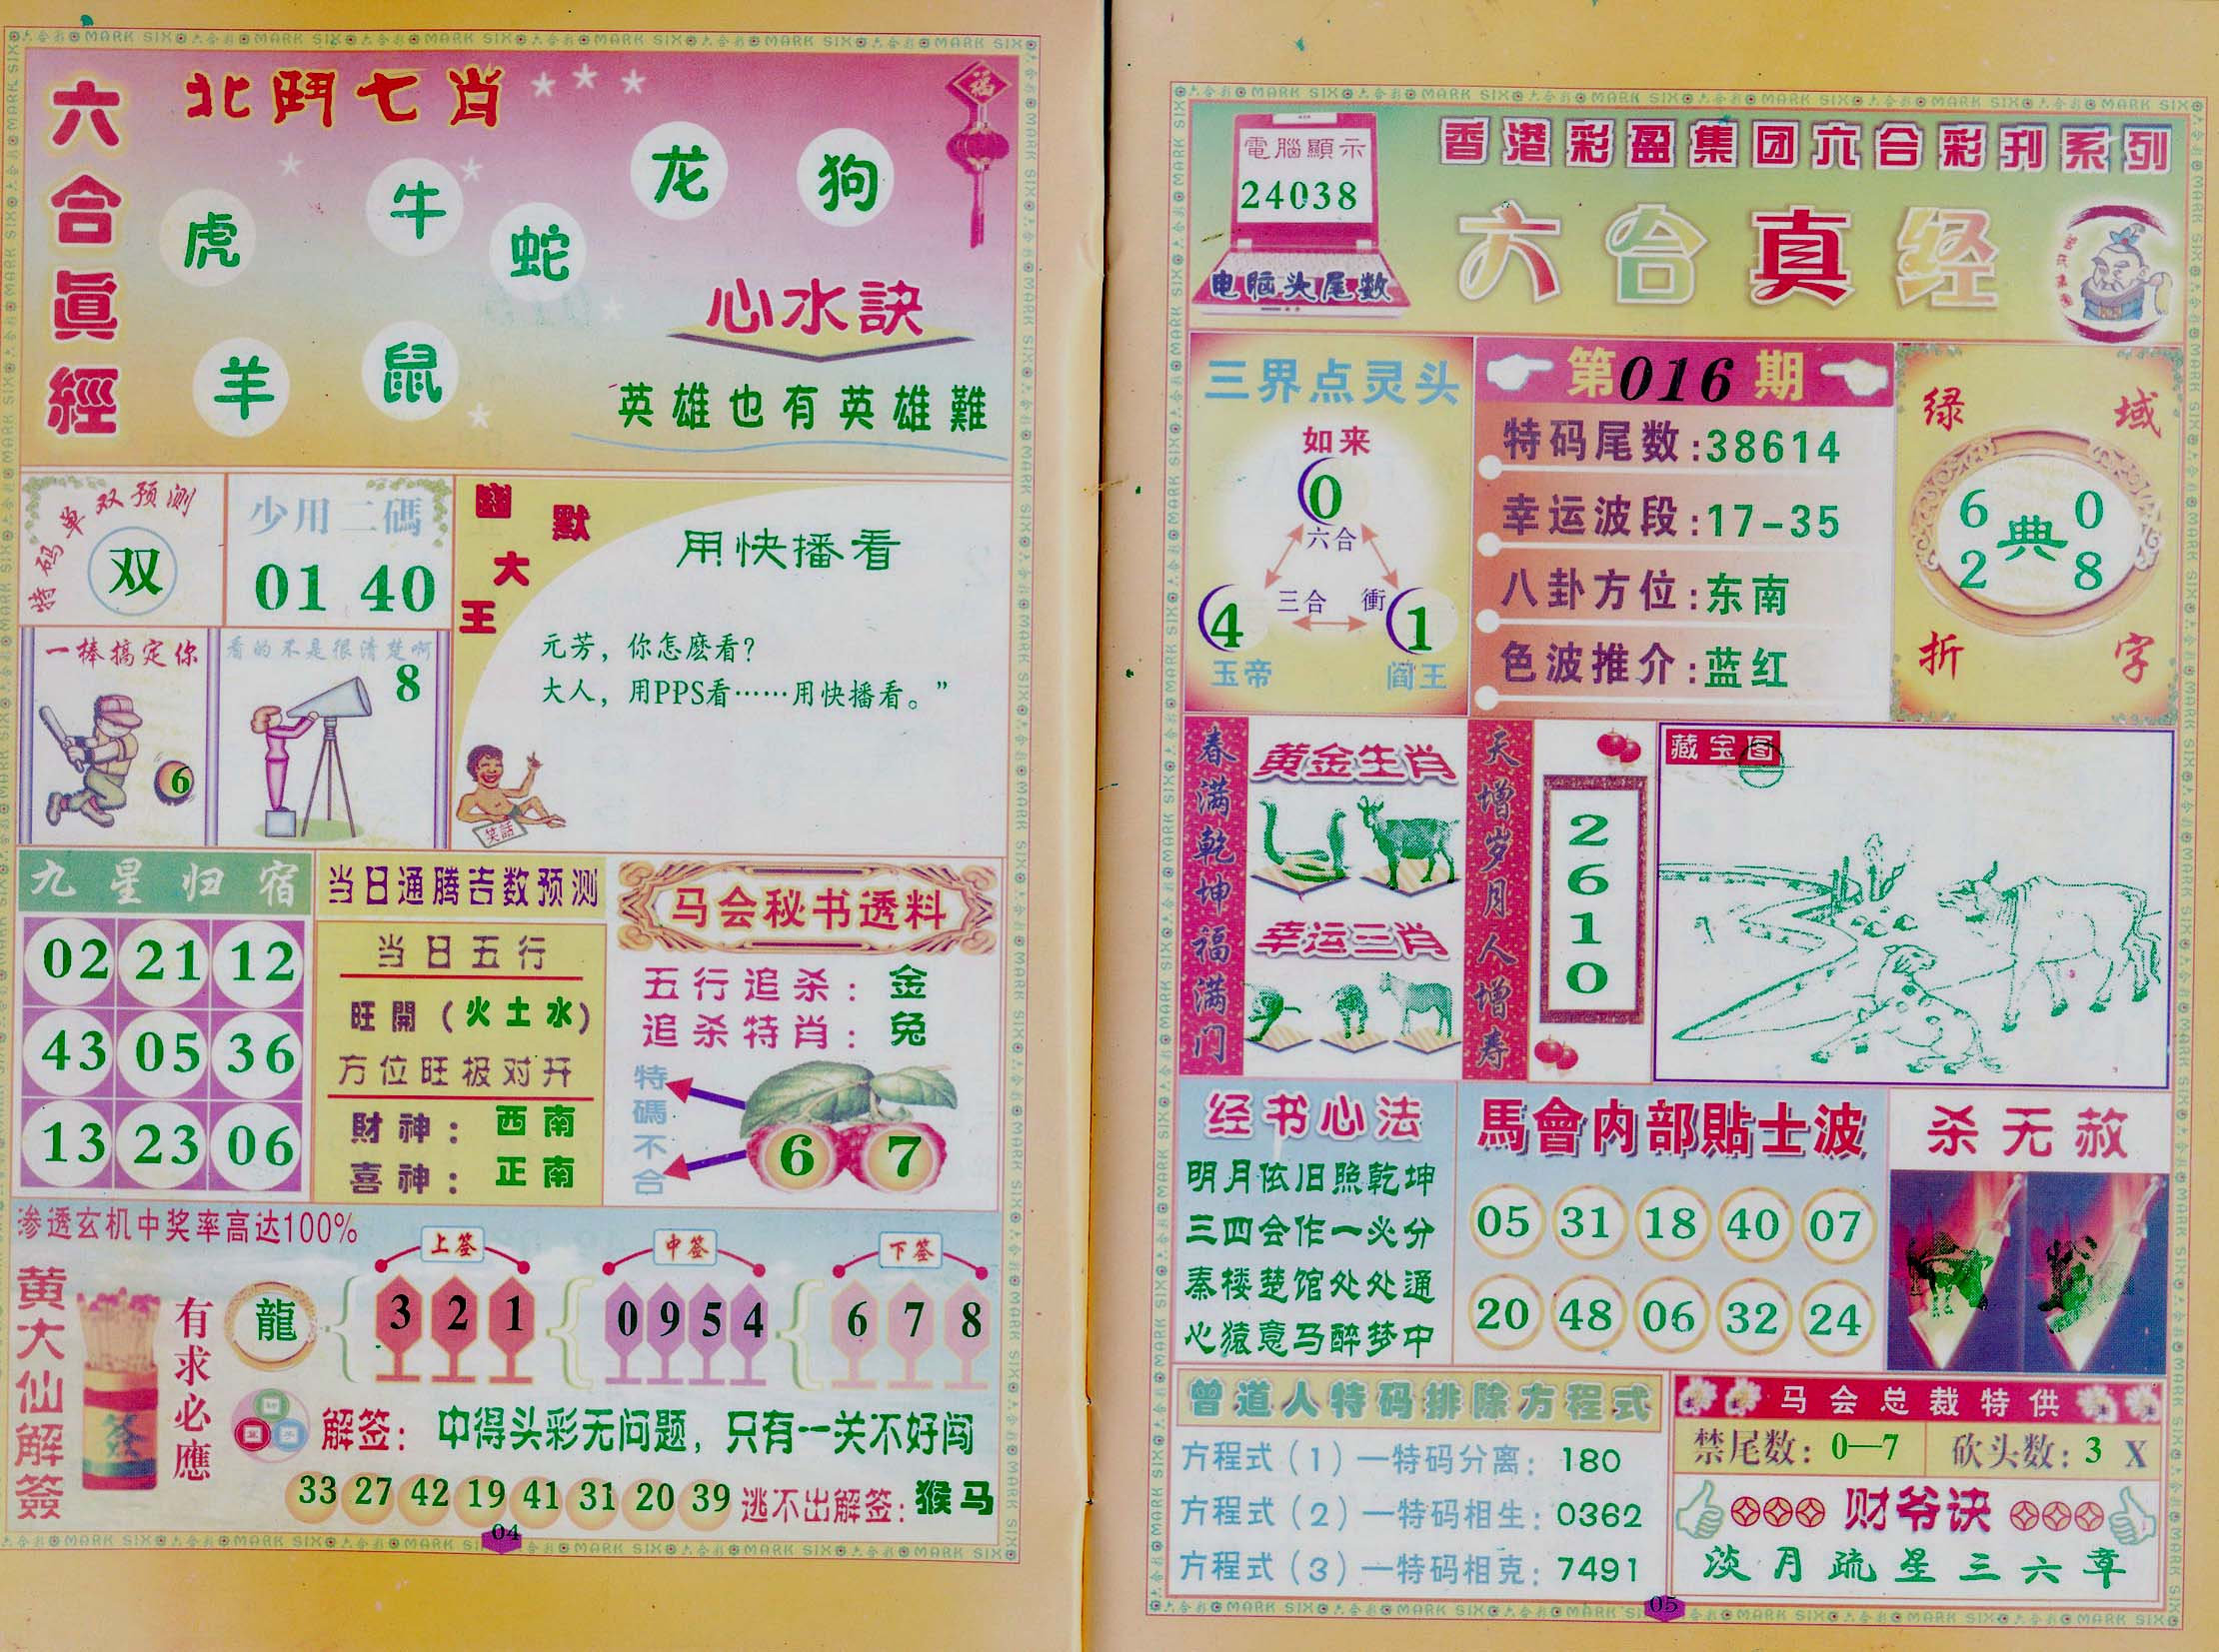 六合眞經
北鬥七肖
虎
牛
蛇
龙
狗
羊
鼠
福
心水訣
英雄也有英雄難
特码单双预测
双
少用二碼
01 40
一棒搞定你
6
看的不是很清楚啊
8
幽默大王
用快播看
元芳，你怎麽看？
大人，用PPS看……用快播看。”
笑話
九星归宿
02 21 12
43 05 36
13 23 06
当日通腾吉数预测
当日五行
旺開（火土水）
方位旺极对开
財神：西南
喜神：正南
马会秘书透料
五行追杀：金
追杀特肖：兔
特碼不合
6 7
渗透玄机中奖率高达100%
黄大仙解簽
有求必應
龍
上签
3 2 1
中签
0 9 5 4
下签
6 7 8
解签：中得头彩无问题，只有一关不好闯
33 27 42 19 41 31 20 39 逃不出解签：猴马
04
電腦顯示
24038
电脑头尾数
香港彩盈集团六合彩刊系列
六合真经
三界点灵头
如来
0
六合
三合
衝
4
1
玉帝
阎王
第016期
特码尾数：38614
幸运波段：17-35
八卦方位：东南
色波推介：蓝红
绿域
6 0
典
2 8
折字
春满乾坤福满门
黄金生肖
幸运三肖
天增岁月人增寿
2610
藏宝图
经书心法
明月依旧照乾坤
三四会作一必分
秦楼楚馆处处通
心猿意马醉梦中
馬會内部貼士波
05 31 18 40 07
20 48 06 32 24
杀无赦
曾道人特码排除方程式
方程式（1）—特码分离：180
方程式（2）—特码相生：0362
方程式（3）—特码相克：7491
马会总裁特供
禁尾数：0—7
砍头数：3 X
财爷诀
淡月疏星三六章
05